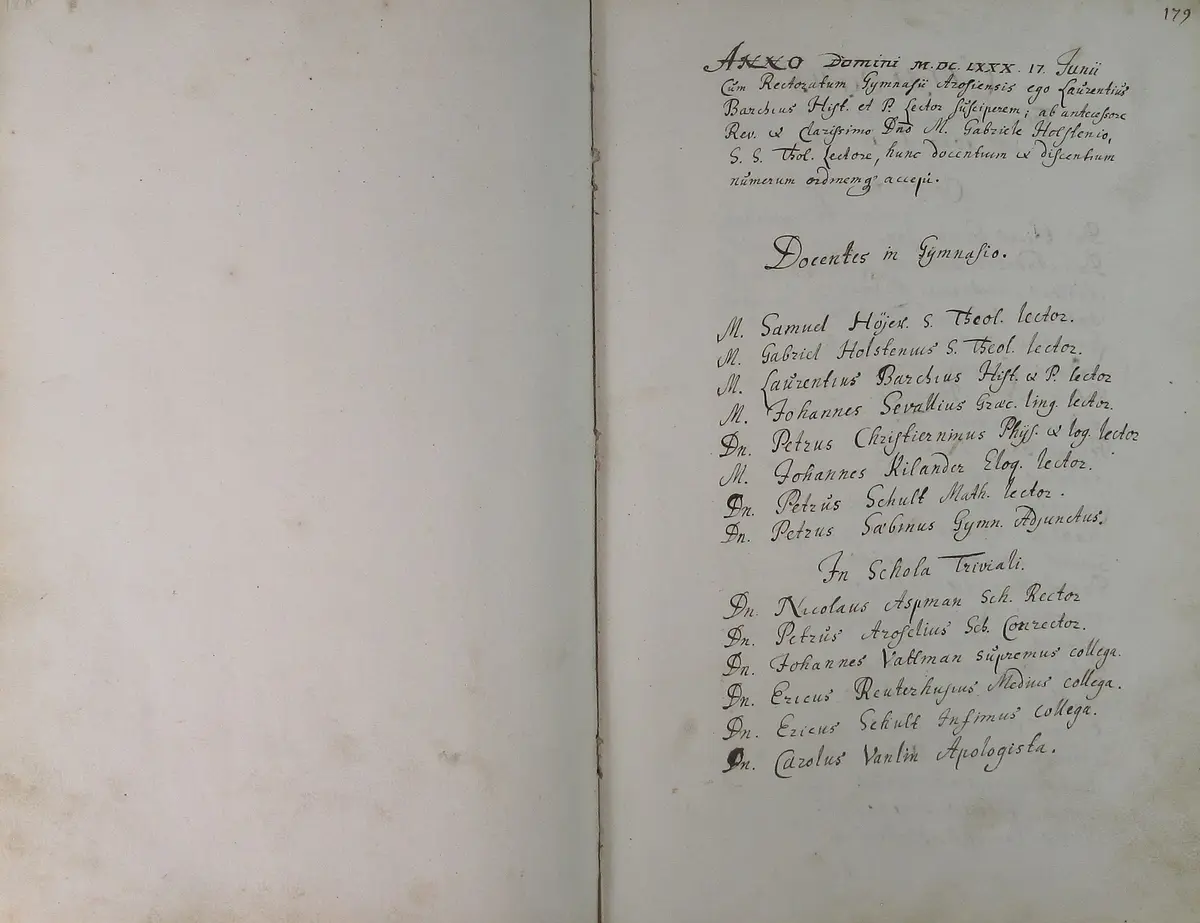 179
ANNO Domini M.DC.LXXX. 17. Junii
Cum Rectoratum Gymnasii Arosiensis ego Laurentius
Barchius Hist. et P. Lector susciperem, ab antecessore
Rev. & Clarissimo Dno M. Gabriele Holstenio,
S. S. Theol. Lectore, hunc docentium & discentium
numerum ordinemq; accepi.
Docentes in Gymnasio.
M. Samuel Höjer. S. Theol. lector.
M. Gabriel Holstenius S. Theol. lector.
M. Laurentius Barchius Hist. & P. lector
M. Johannes Sevallius Græc. ling. lector.
Dn. Petrus Christierninus Phys. & log. lector
M. Johannes Kilander Eloq. lector.
Dn. Petrus Schult Math. lector.
Dn. Petrus Sæbinus Gymn. Adjunctus.
In Schola Triviali.
Dn. Nicolaus Aspman Sch. Rector
Dn. Petrus Aroselius Sch. Conrector.
Dn. Johannes Vallman supremus collega.
Dn. Ericus Reuterhusius Medius collega.
Dn. Ericus Schult Infimus collega.
Dn. Carolus Vanlin Apologista.